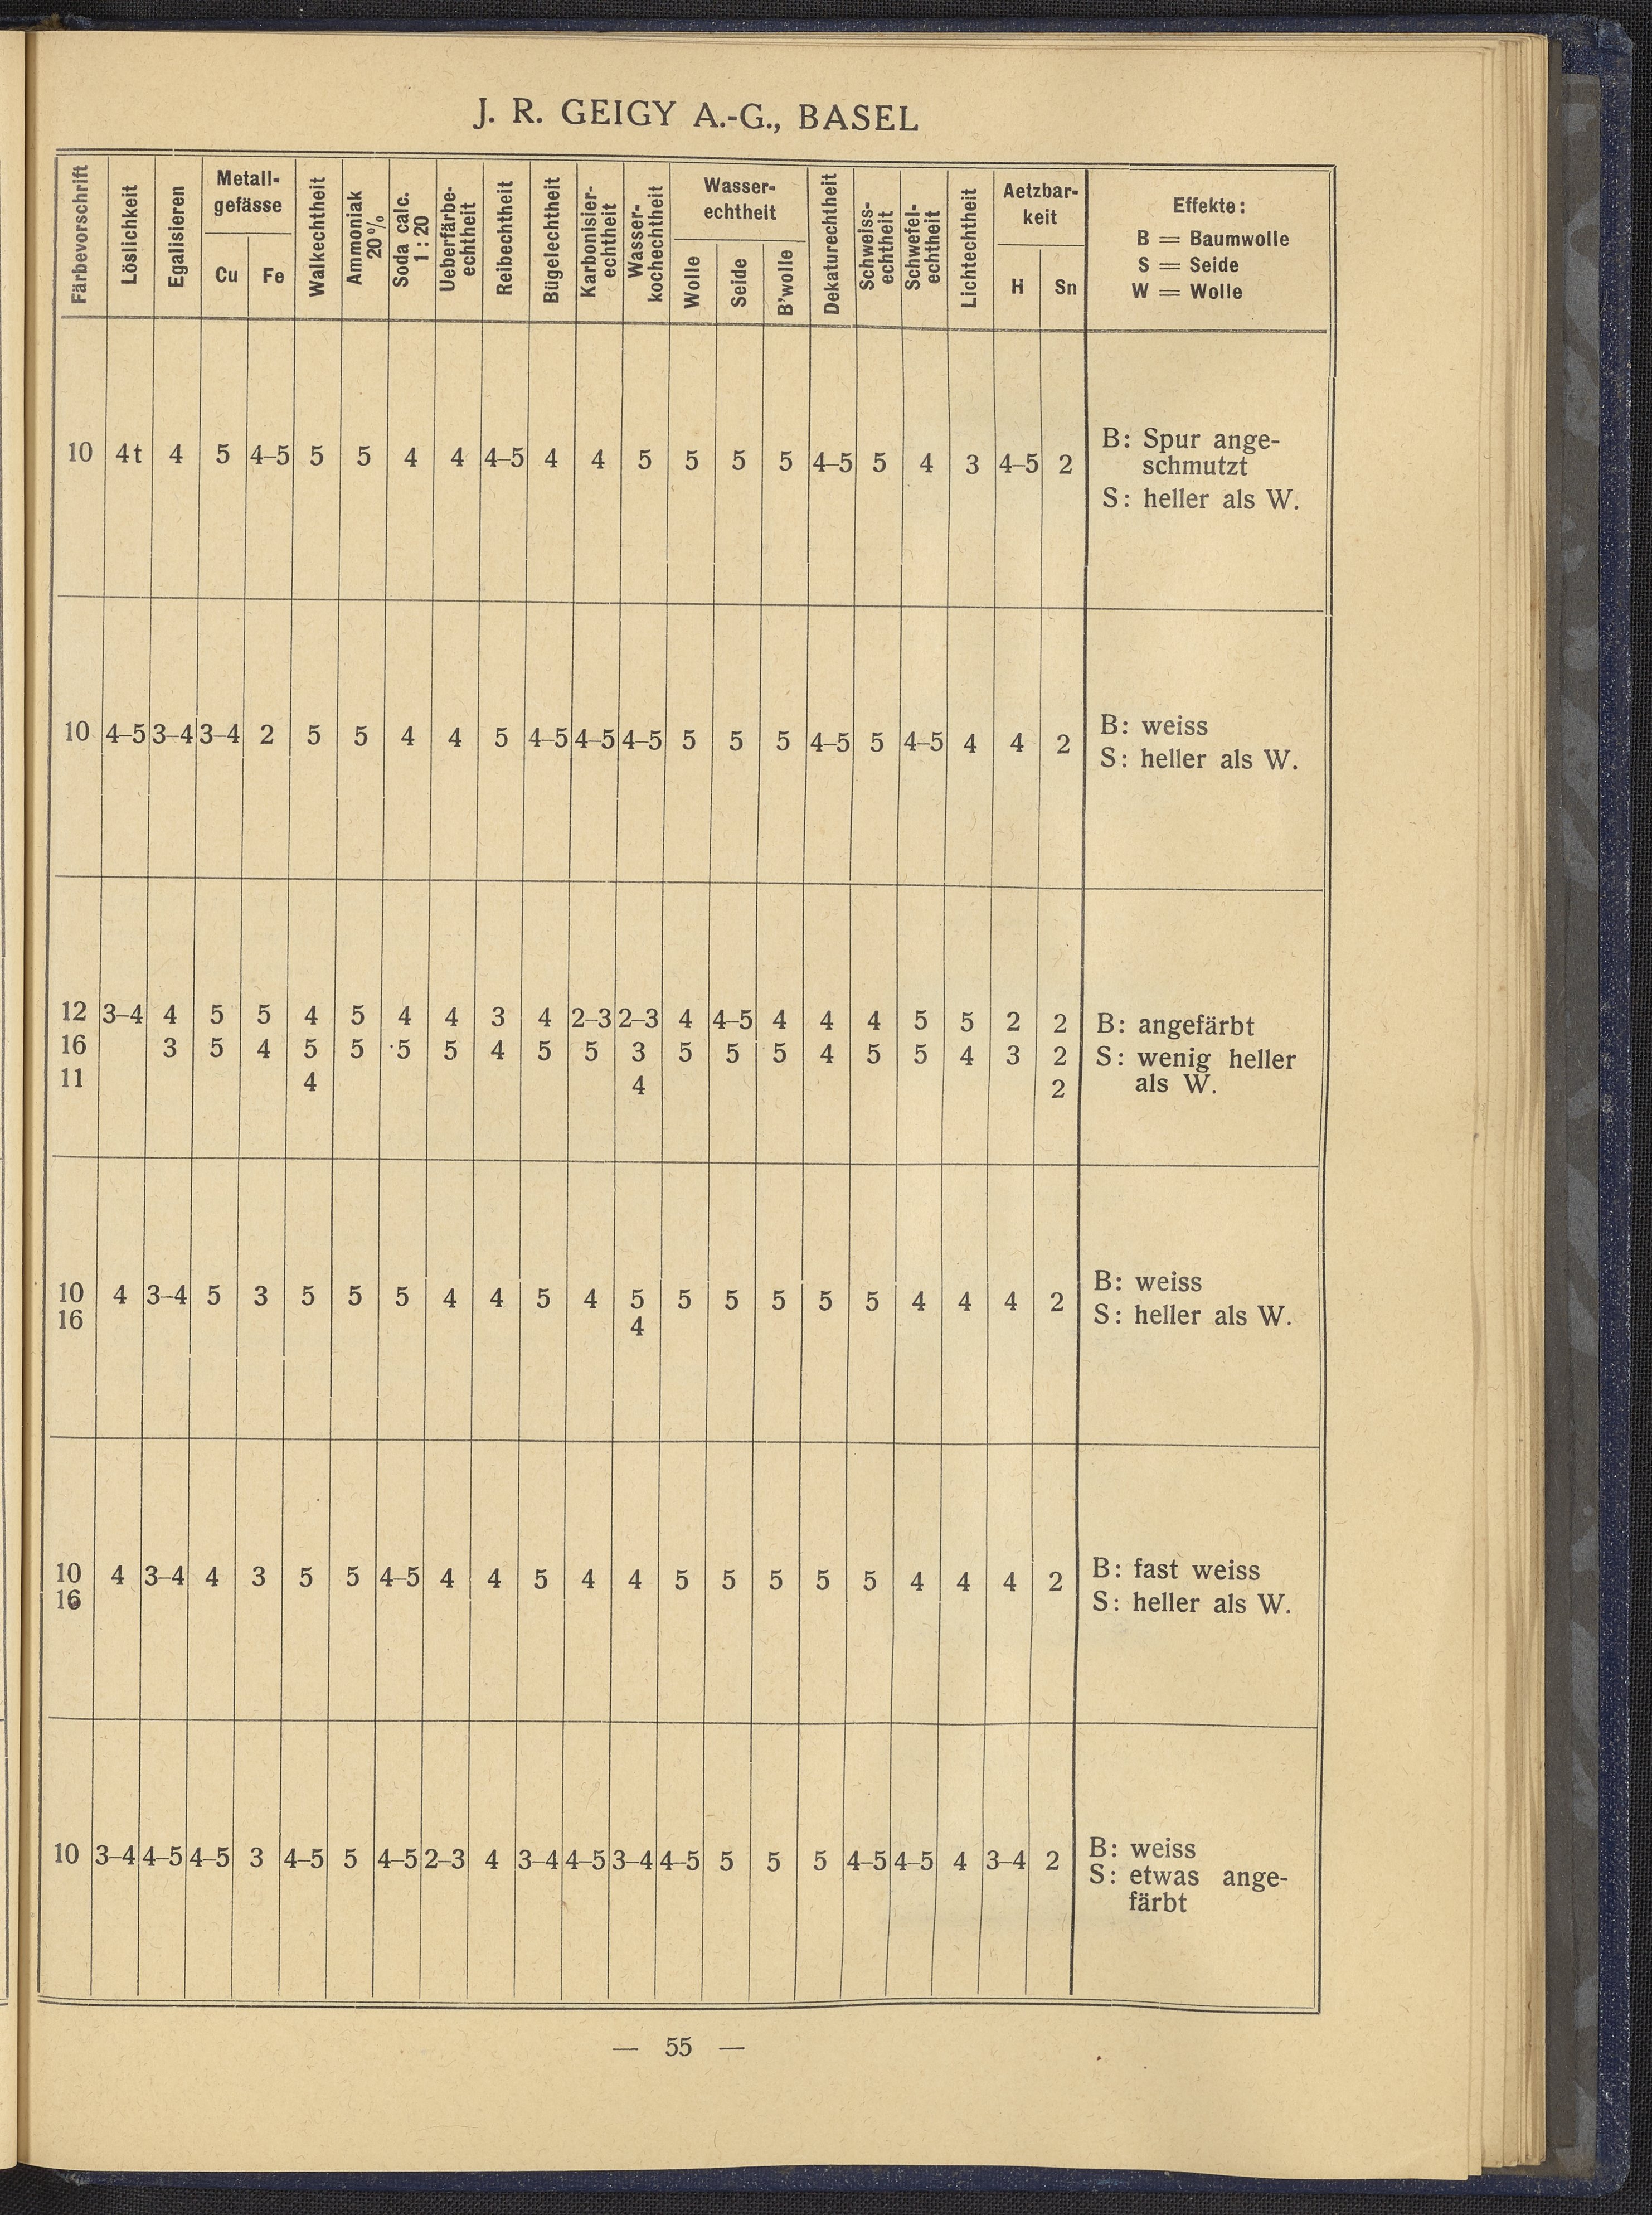 J. R. GEIGY A.-G., BASEL
Färbevorschrift
Löslichkeit
Egalisieren
Metall-
gefässe
Cu Fe
Walkechtheit
Ammoniak
20%
Soda calc.
1 : 20
Ueberfärbe-
echtheit
Reibechtheit
Bügelechtheit
Karbonisier-
echtheit
Wasser-
kochechtheit
Wasser-
echtheit
Wolle
Seide
B'wolle
Dekaturechtheit
Schweiss-
echtheit
Schwefel-
echtheit
Lichtechtheit
Aetzbar-
keit
H Sn
Effekte:
B = Baumwolle
S = Seide
W = Wolle
10 4t 4 5 4–5 5 5 4 4 4–5 4 4 5 5 5 5 4–5 5 4 3 4–5 2
B: Spur ange-
schmutzt
S: heller als W.
10 4–5 3–4 3–4 2 5 5 4 4 5 4–5 4–5 4–5 5 5 5 4–5 5 4–5 4 4 2
B: weiss
S: heller als W.
12 3–4 4 5 5 4 5 4 4 3 4 2–3 2–3 4 4–5 4 4 4 5 5 2 2
16 3 5 4 5 5 5 5 4 5 5 3 5 5 5 4 5 5 4 3 2
11 4 4 2
B: angefärbt
S: wenig heller
als W.
10 4 3–4 5 3 5 5 5 4 4 5 4 5 5 5 5 5 5 4 4 4 2
16 4
B: weiss
S: heller als W.
10 4 3–4 4 3 5 5 4–5 4 4 5 4 4 5 5 5 5 5 4 4 4 2
16
B: fast weiss
S: heller als W.
10 3–4 4–5 4–5 3 4–5 5 4–5 2–3 4 3–4 4–5 3–4 4–5 5 5 5 4–5 4–5 4 3–4 2
B: weiss
S: etwas ange-
färbt
— 55 —